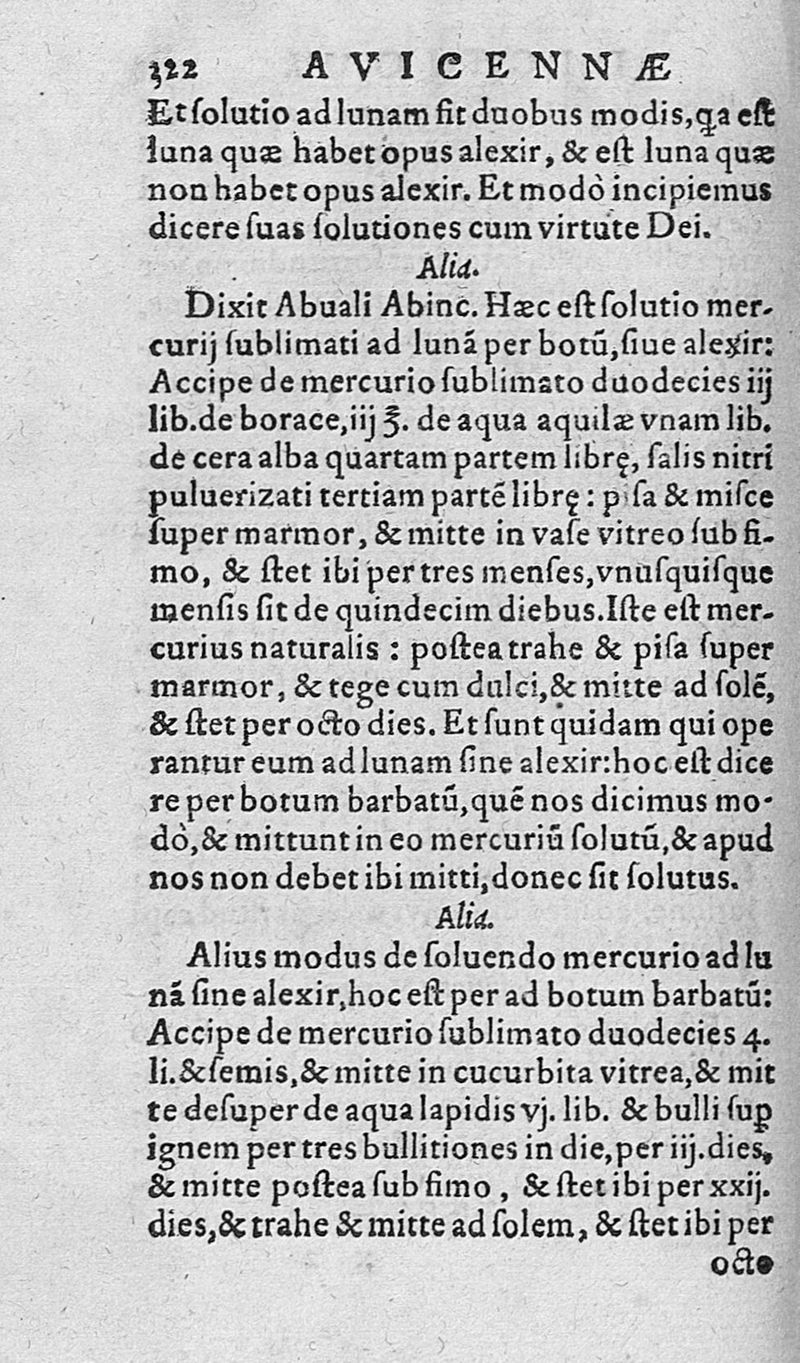 322 AVICENNÆ
Et ſolutio ad lunam fit duobus modis, q̃a eſt
luna quæ habet opus alexir, & eſt luna quæ
non habet opus alexir. Et modò incipiemus
dicere ſuas ſolutiones cum virtute Dei.
Alia.
Dixit Abuali Abinc. Hæc eſt ſolutio mer-
curij ſublimati ad lunã per botũ, ſiue alexir:
Accipe de mercurio ſublimato duodecies iij
lib. de borace, iij ℥. de aqua aquilæ vnam lib.
de cera alba quartam partem librę, ſalis nitri
puluerizati tertiam partẽ librę: piſa & miſce
ſuper marmor, & mitte in vaſe vitreo ſub fi-
mo, & ſtet ibi per tres menſes, vnuſquiſque
menſis ſit de quindecim diebus. Iſte eſt mer-
curius naturalis : poſtea trahe & piſa ſuper
marmor, & tege cum dulci, & mitte ad ſolẽ,
& ſtet per octo dies. Et ſunt quidam qui ope
rantur eum ad lunam ſine alexir: hoc eſt dice
re per botum barbatũ, quẽ nos dicimus mo-
dò, & mittunt in eo mercuriũ ſolutũ, & apud
nos non debet ibi mitti, donec ſit ſolutus.
Alia.
Alius modus de ſoluendo mercurio ad lu
nã ſine alexir, hoc eſt per ad botum barbatũ:
Accipe de mercurio ſublimato duodecies 4.
li. & ſemis, & mitte in cucurbita vitrea, & mit
te deſuper de aqua lapidis vj. lib. & bulli ſuꝑ
ignem per tres bullitiones in die, per iij. dies,
& mitte poſtea ſub fimo, & ſtet ibi per xxij.
dies, & trahe & mitte ad ſolem, & ſtet ibi per
octo